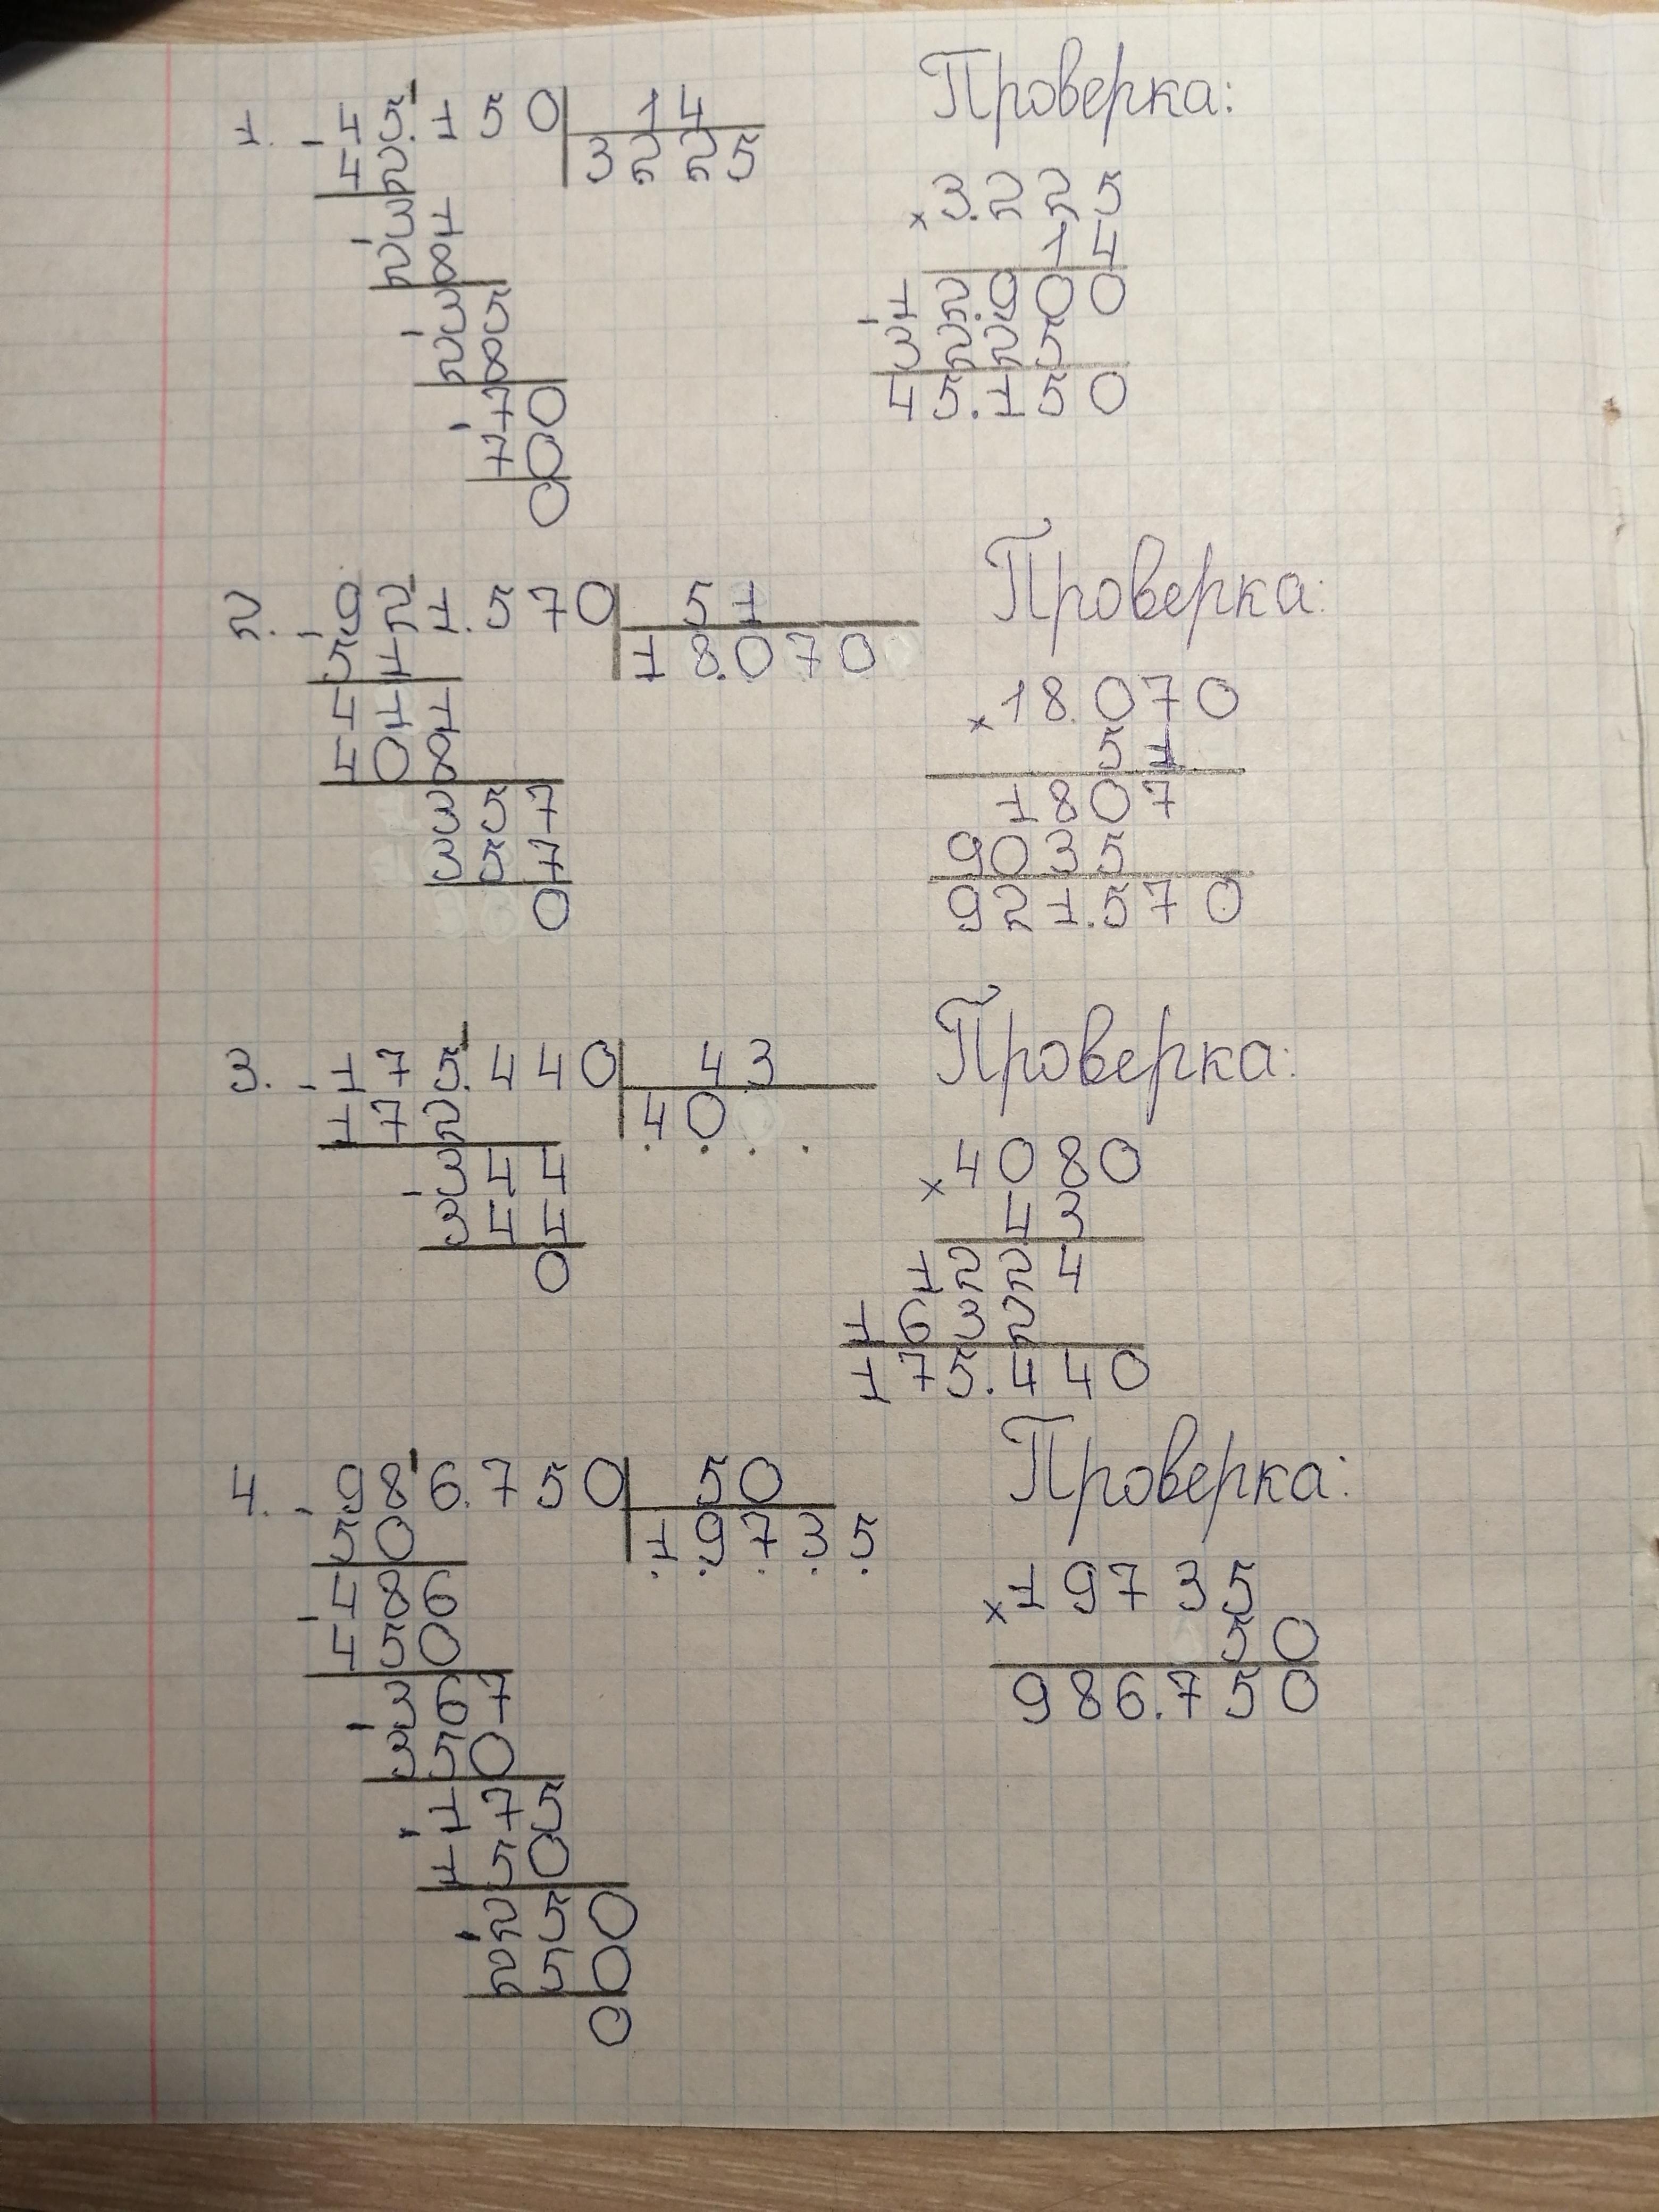 1. - 45.150 | 14
42 | 3225
- 31
28
- 35
28
- 70
70
0
Проверка:
× 3.225
14
12.900
3225
45.150
2. - 921.570 | 51
51 | 18.070
411
408
357
357
0
Проверка:
× 18.070
51
1807
9035
921.570
3. - 175.440 | 43
172 | 40
- 344
344
0
Проверка:
× 4080
43
1224
1632
175.440
4. - 986.750 | 50
50 | 19735
- 486
450
- 367
350
- 175
150
- 250
250
0
Проверка:
× 19735
50
986.750